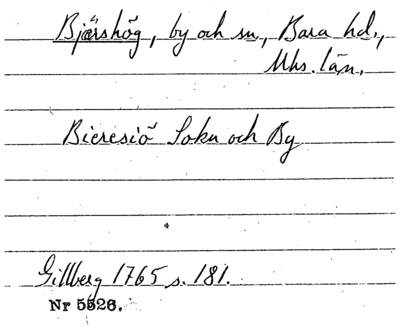 Bjärshög, by och sn, Bara hd.,
Mhs. län.
Bieresiö Sokn och By
Gillberg 1765 s. 181.
Nr 5526.